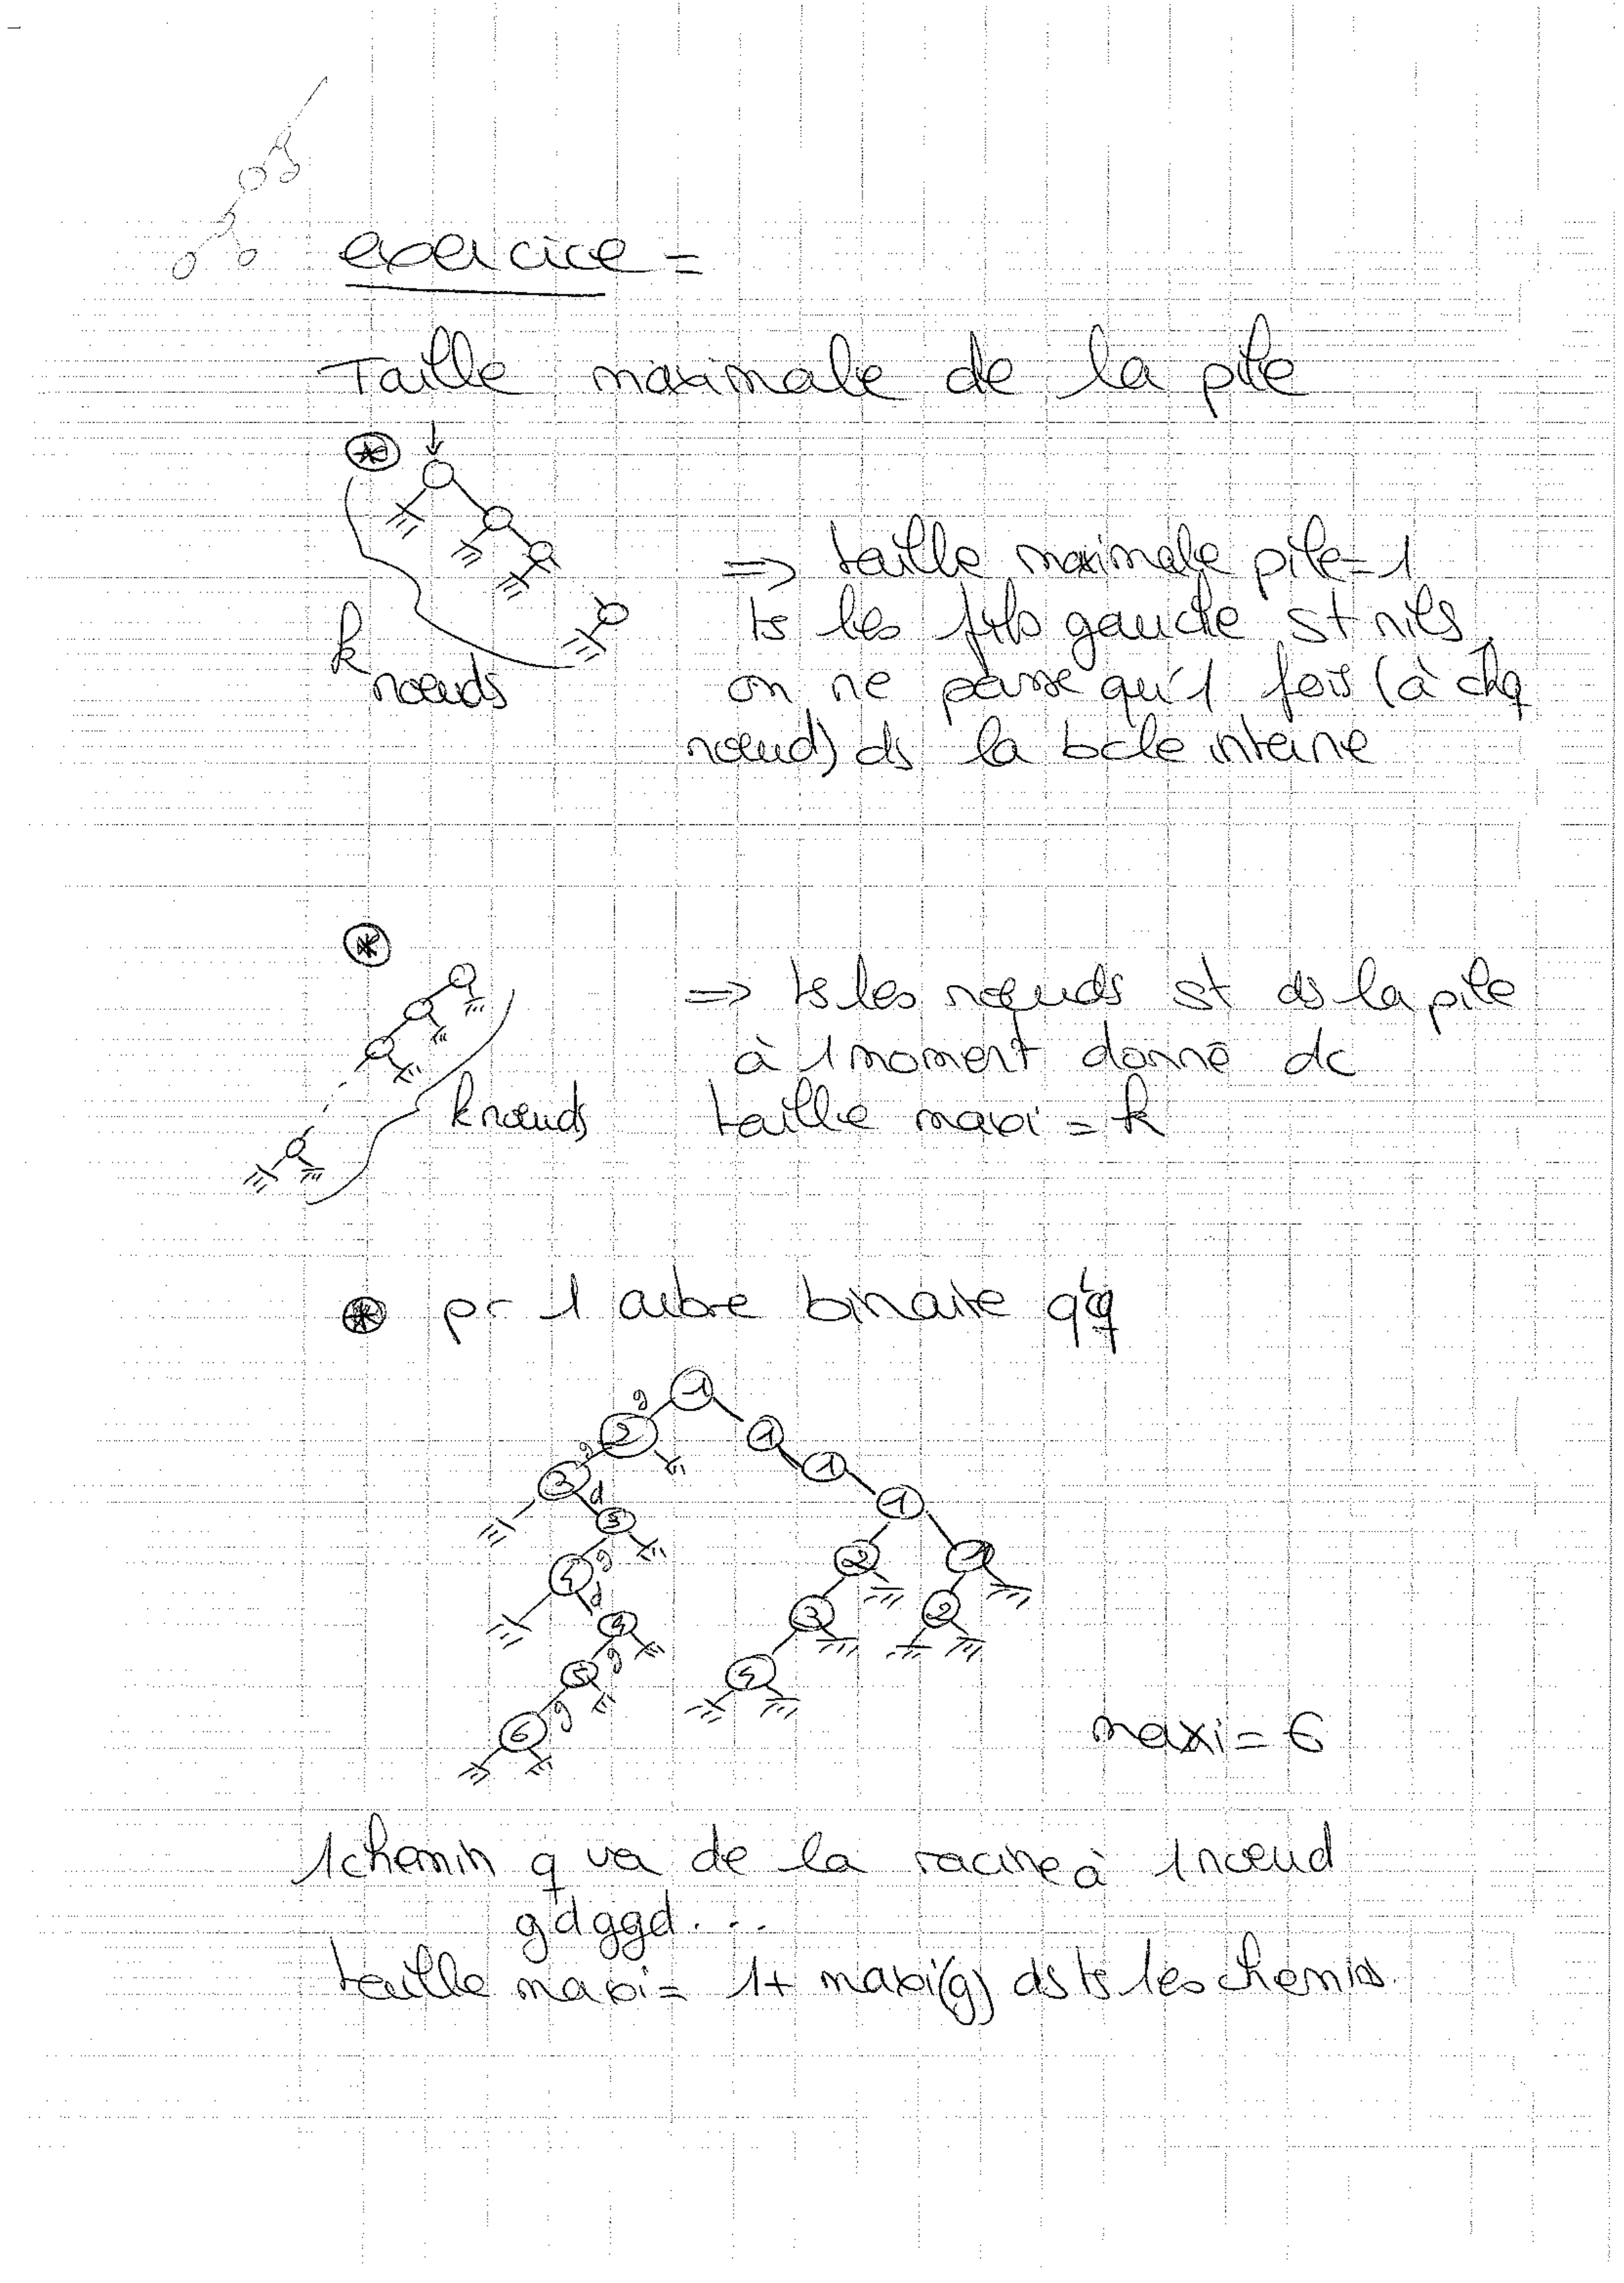 exercice =
Taille maximale de la pile
⇒ taille maximale pile = 1
ts les fils gauche st nils,
on ne passe qu'1 fois (à chq
nœud) ds la bcle interne
k
nœuds
⇒ ts les nœuds st ds la pile
à 1 moment donné dc
k nœuds
taille maxi = k
pr 1 arbre binaire qcq
1
g 2 1
g 3 d 1
3 1
4 g 2 1
d
4 3 2
5 g 4
6 g
maxi = 6
1 chemin q va de la racine à 1 nœud
gdggd...
taille maxi = 1+ maxi(g) ds ts les chemins.